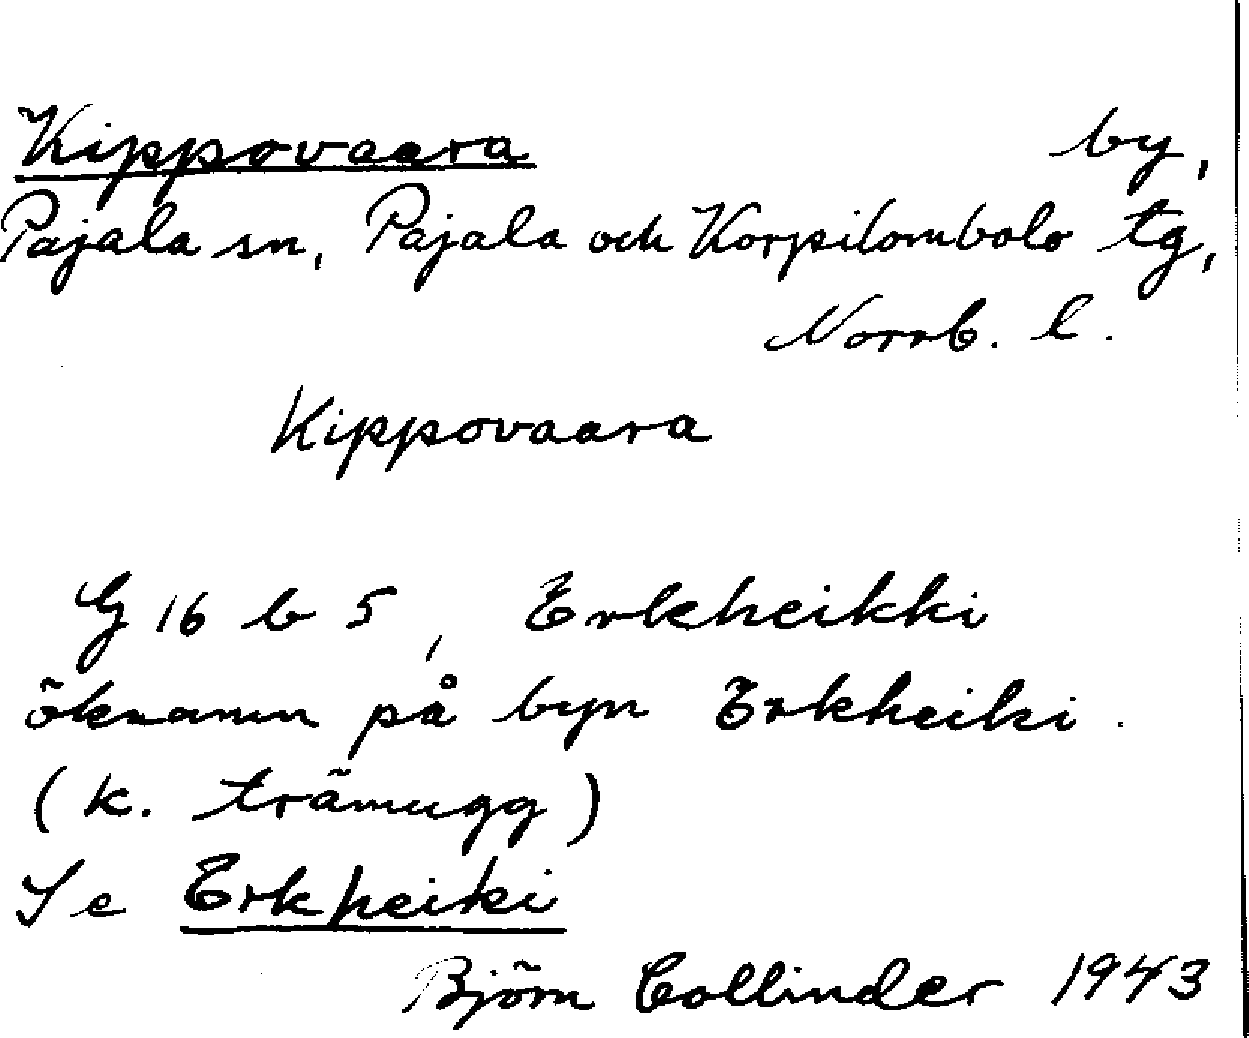 Kippovaara by,
Pajala sn, Pajala och Korpilombolo tg,
Norrb. l.
Kippovaara
G 16 b 5, Erkheikki
öknamn på byn Erkheiki.
(k. trämugg)
Se Erkheiki
Björn Collinder 1943